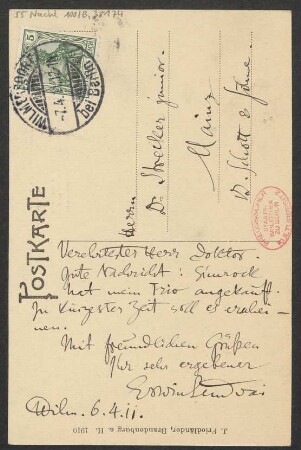 55 Nachl 100/B,
5
WILMERSDORF
bei Berlin
POSTKARTE
Herrn
Dr. Strecker junior.
Mainz
B. Schott's Söhne.
Verehrtester Herr Doktor.
Gute Nachricht: Simrock
hat mein Trio angekauft.
In kürzester Zeit soll es erschei-
nen.
Mit freundlichen Grüßen
Ihr sehr ergebener
Erwin Lendvai
Wilm. 6.4.11.
J. Friedländer, Brandenburg a. H. 1910